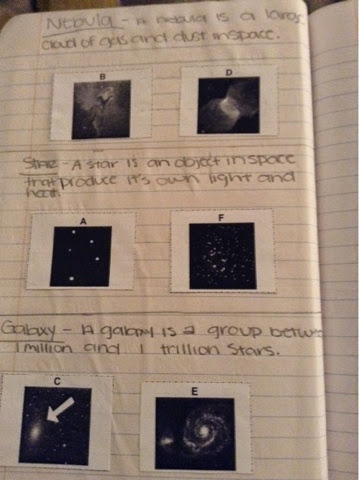 Nebula - A nebula is a large
cloud of gas and dust in space.
B
D
Star - A star is an object in space
that produce it's own light and
heat.
A
F
Galaxy - A galaxy is a group between
1 million and 1 trillion stars.
C
E